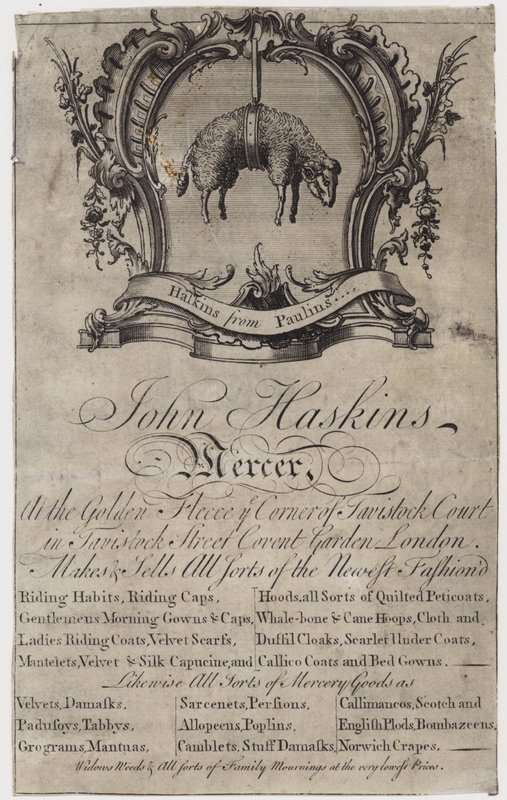 Haſkins from Paulins....
John Haskins
Mercer,
At the Golden Fleece yͤ Corner of Tavistock Court
in Tavistock Street Covent Garden London.
Makes & Sells All ſorts of the Neweſt Faſhion'd
Riding Habits, Riding Caps, Hoods, all Sorts of Quilted Peticoats,
Gentlemens Morning Gowns & Caps, Whale-bone & Cane Hoops, Cloth and
Ladies Riding Coats, Velvet Scarfs, Duffil Cloaks, Scarlet Under Coats,
Mantelets, Velvet & Silk Capucine, and Callico Coats and Bed Gowns.
Likewise All Sorts of Mercery Goods as
Velvets, Damaſks, Sarcenets, Perſions, Callimancos, Scotch and
Paduſoys, Tabbys, Allopeens, Poplins, Engliſh Plods, Bombazeens,
Grograms, Mantuas, Camblets, Stuff Damaſks, Norwich Crapes,
Widows Weeds & All ſorts of Family Mournings at the very loweſt Prices.